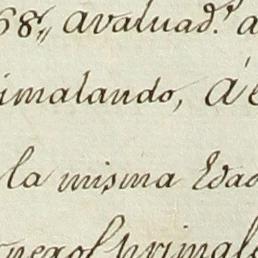 68,, avaluad.ˢ a
imalando, á e
la misma Edad
negol primal